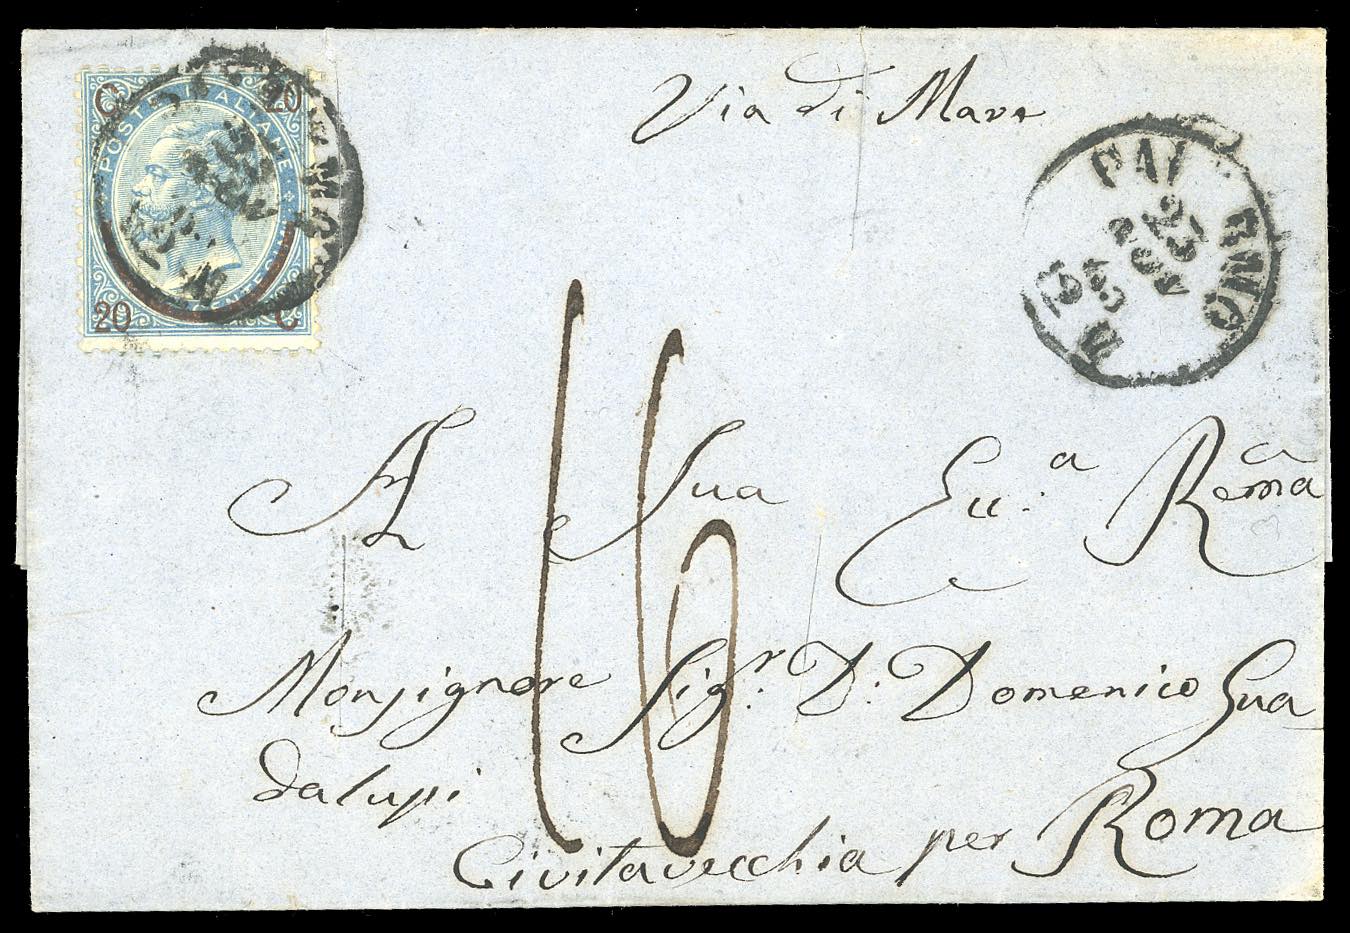 Via di Mare
C 20
POSTE ITALIANE
20 C
PALERMO
23 NOV 65
A Sua Ecc.a Rema
Monsignore Sigr. D. Domenico Gua
dalupi
16
Civitavecchia per Roma